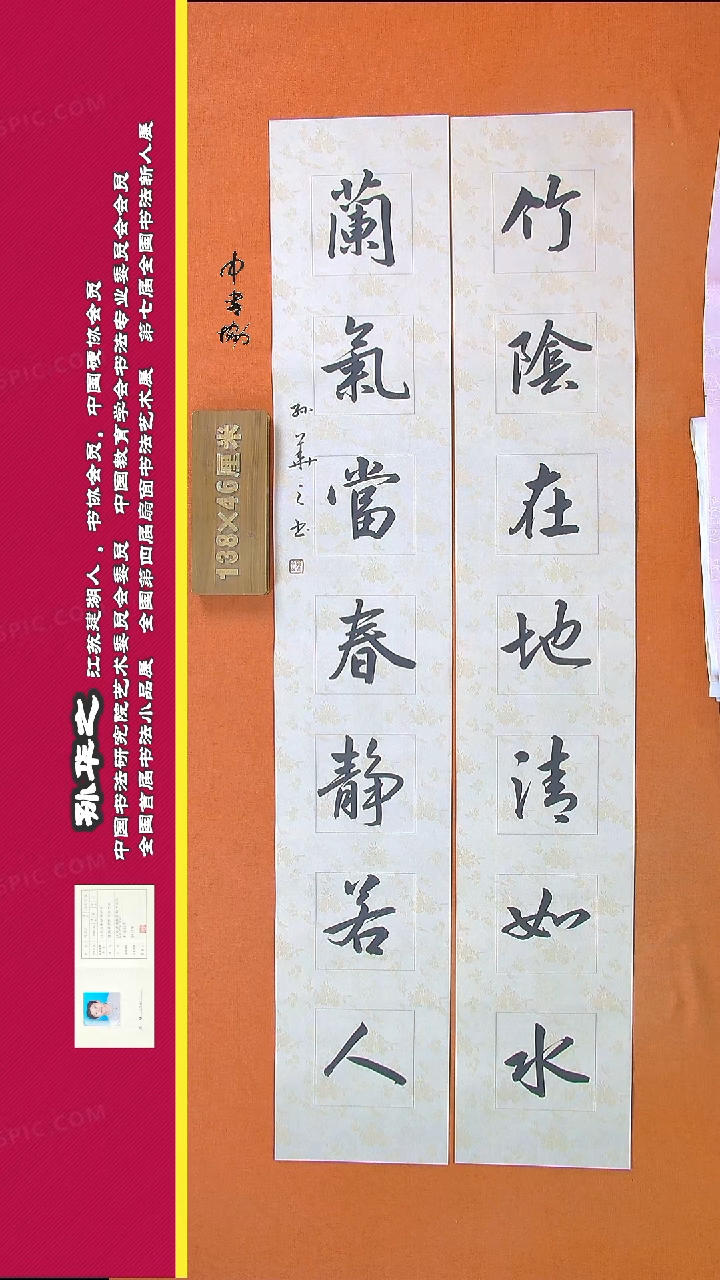 竹陰在地清如水
蘭氣當春静若人
孙華之书
138×46厘米
孙华之 江苏建湖人，书协会员，中国硬协会员
中国书法研究院艺术委员会委员 中国教育学会书法专业委员会会员
全国首届书法小品展 全国第四届扇面书法艺术展 第七届全国书法新人展